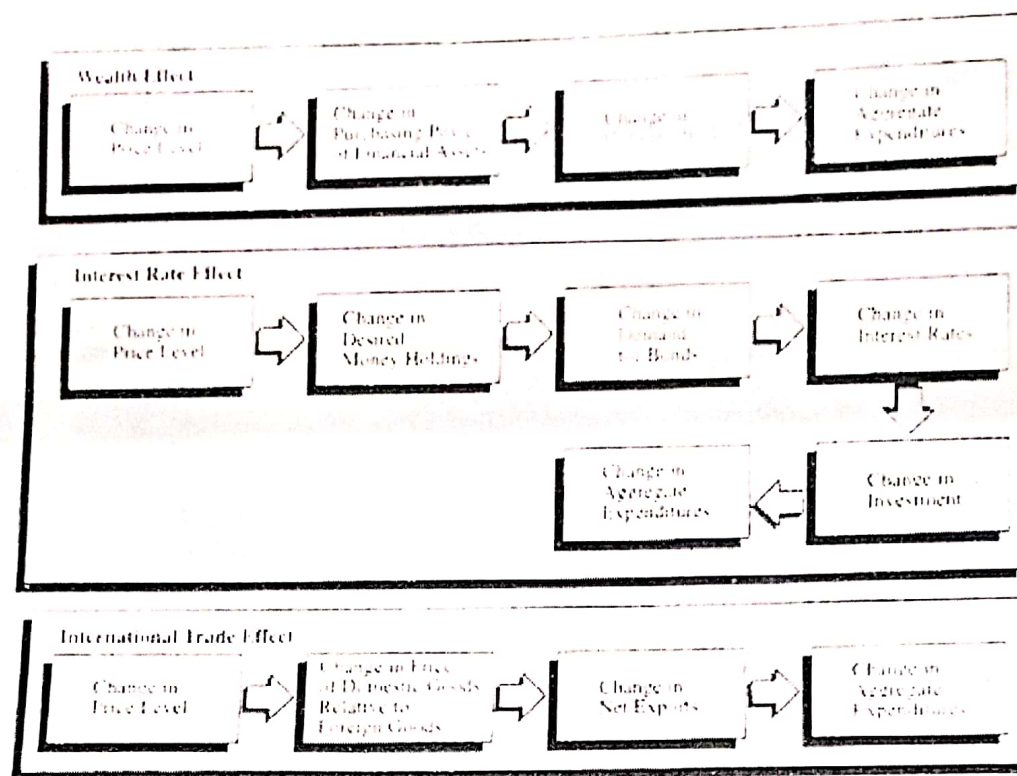 Wealth Effect
Change in
Price Level
Change in
Purchasing Power
of Financial Assets
Change in
Change in
Aggregate
Expenditures
Interest Rate Effect
Change in
Price Level
Change in
Desired
Money Holdings
Change in
Demand
for Bonds
Change in
Interest Rates
Change in
Aggregate
Expenditures
Change in
Investment
International Trade Effect
Change in
Price Level
Change in Price
of Domestic Goods
Relative to
Foreign Goods
Change in
Net Exports
Change in
Aggregate
Expenditures